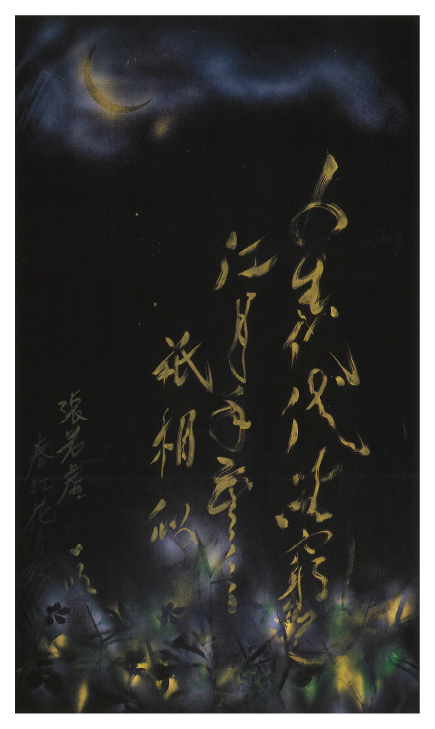 人生代代無窮已
江月年年
祇相似
張若虛
春江花月夜